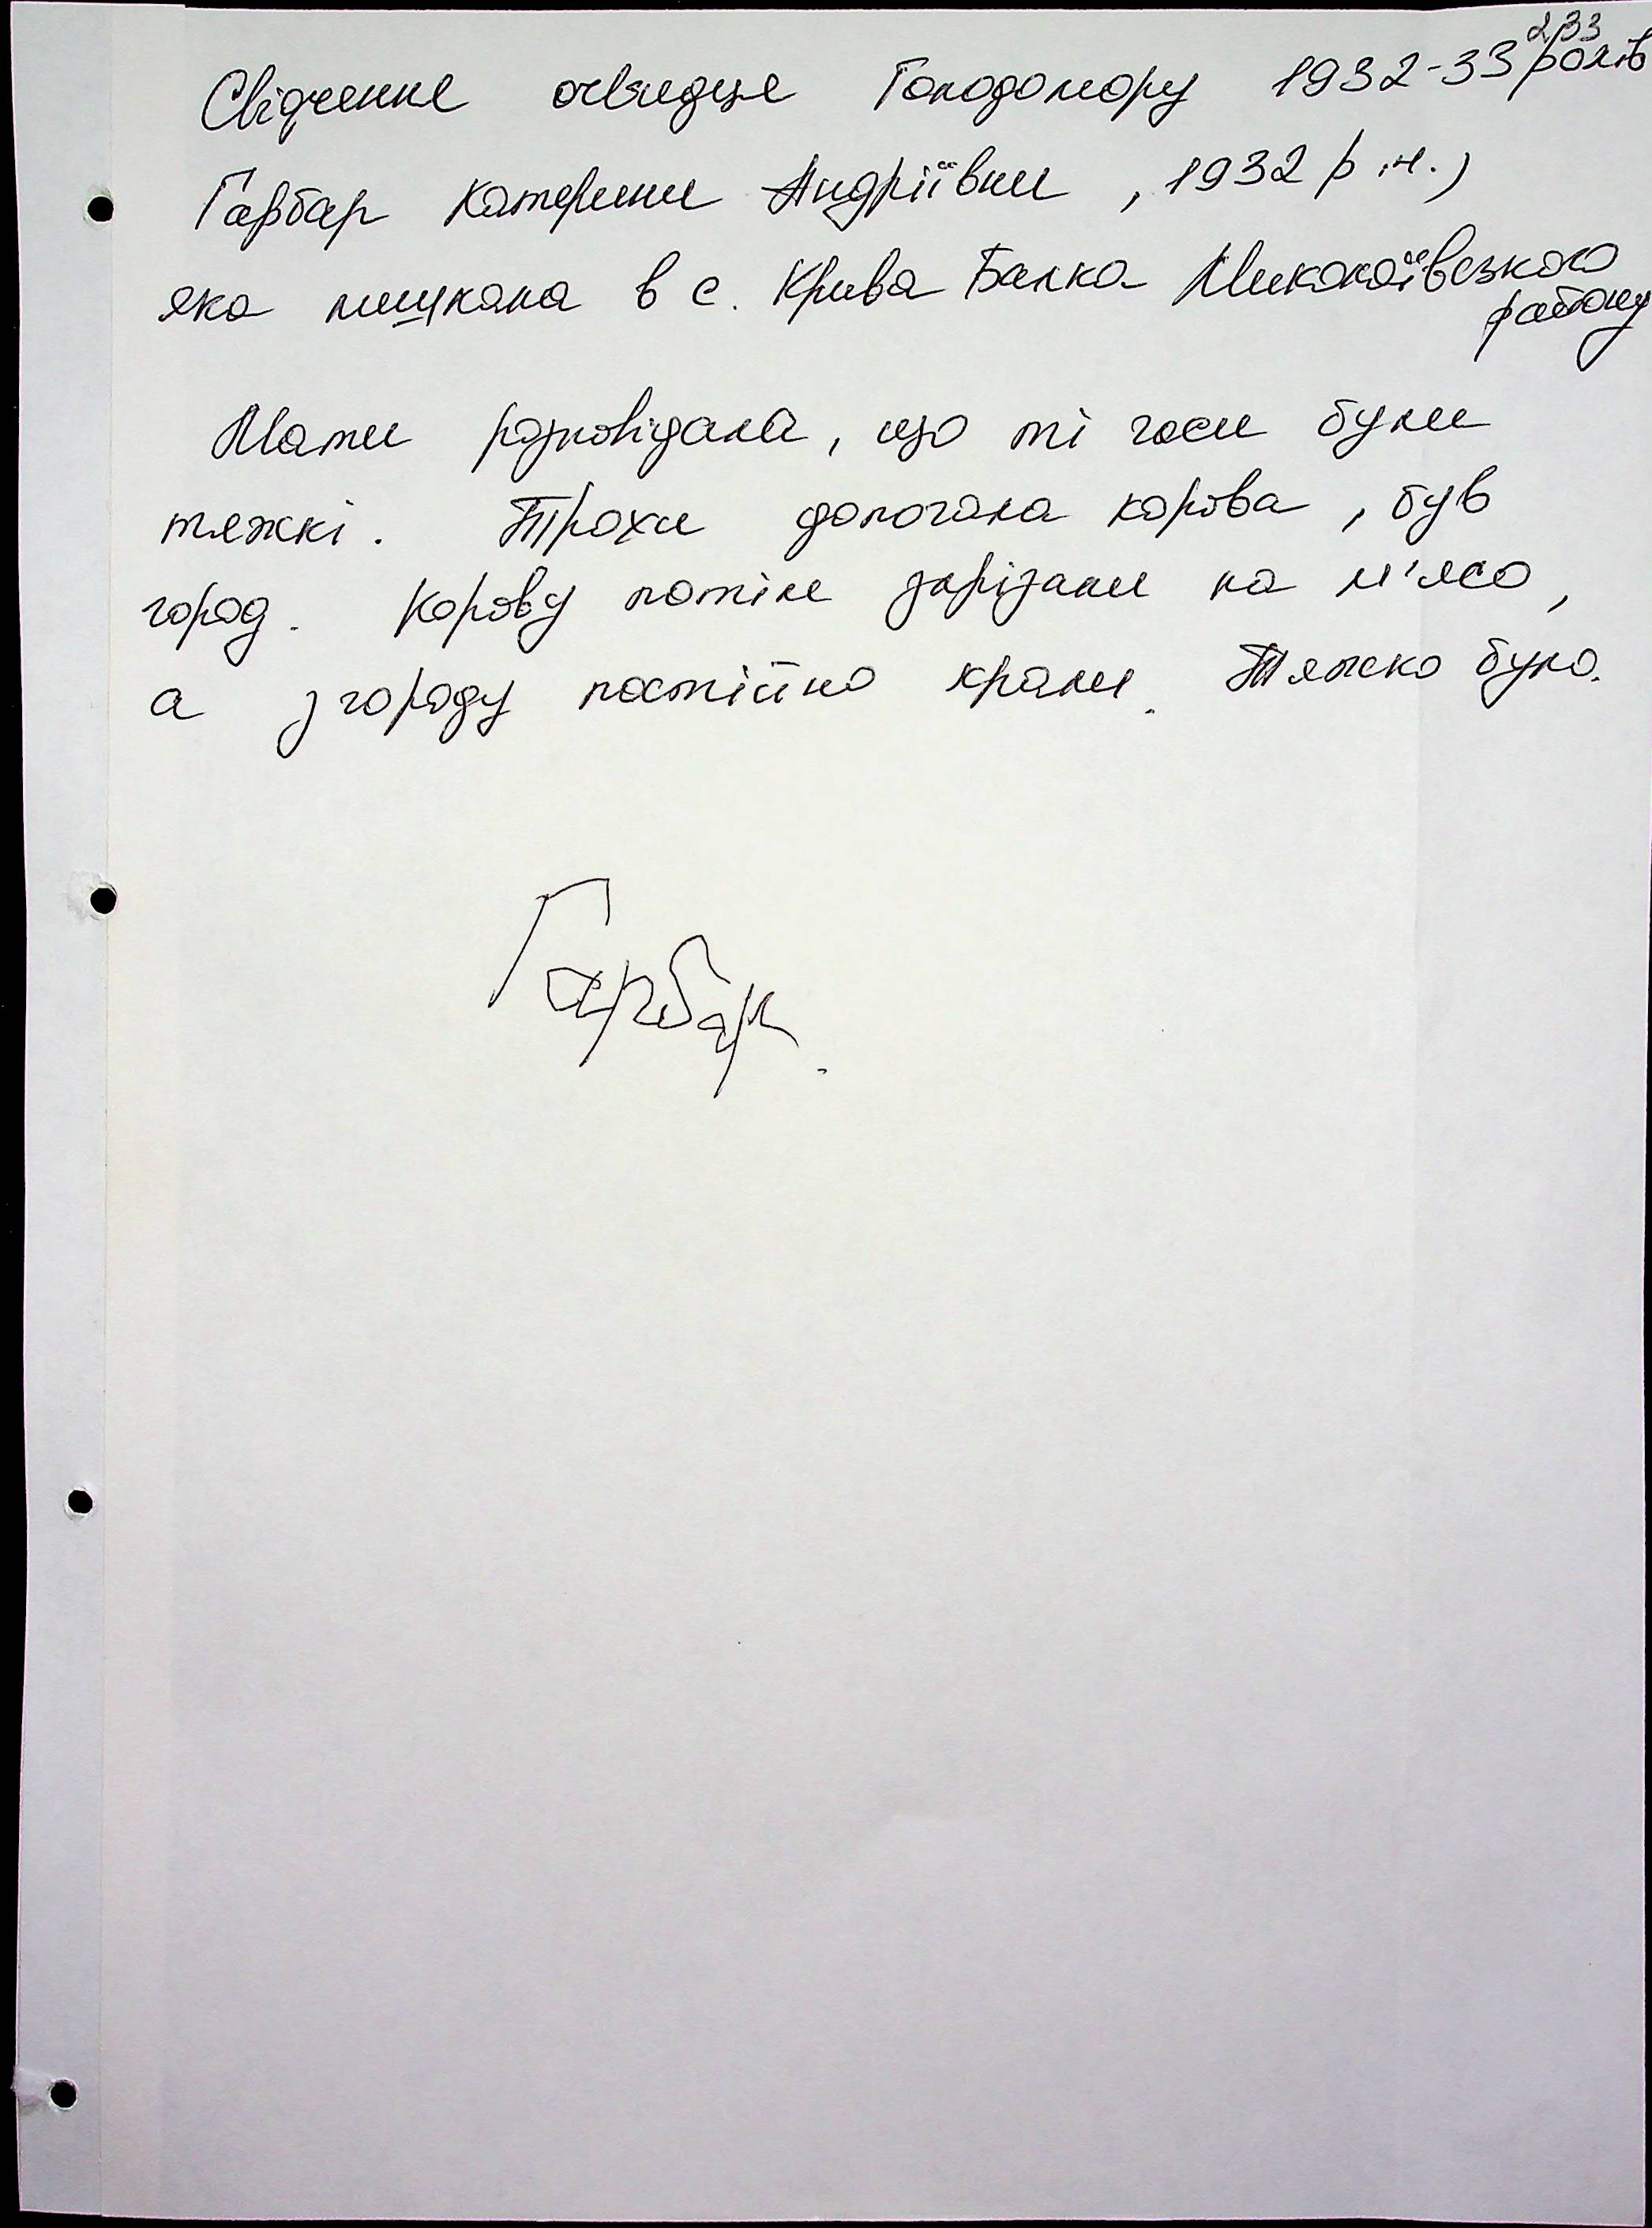 233
Свідчення очевидця Голодомору 1932-33 років
Гарбар Катерини Андріївни, 1932 р.н.,
яка мешкала в с. Крива Балка Миколаївського
району
Мати розповідала, що ті часи були
тяжкі. Трохи допомагала корова, був
город. Корову потім зарізали на м'ясо,
а з городу постійно крали. Тяжко було.
Гарбар